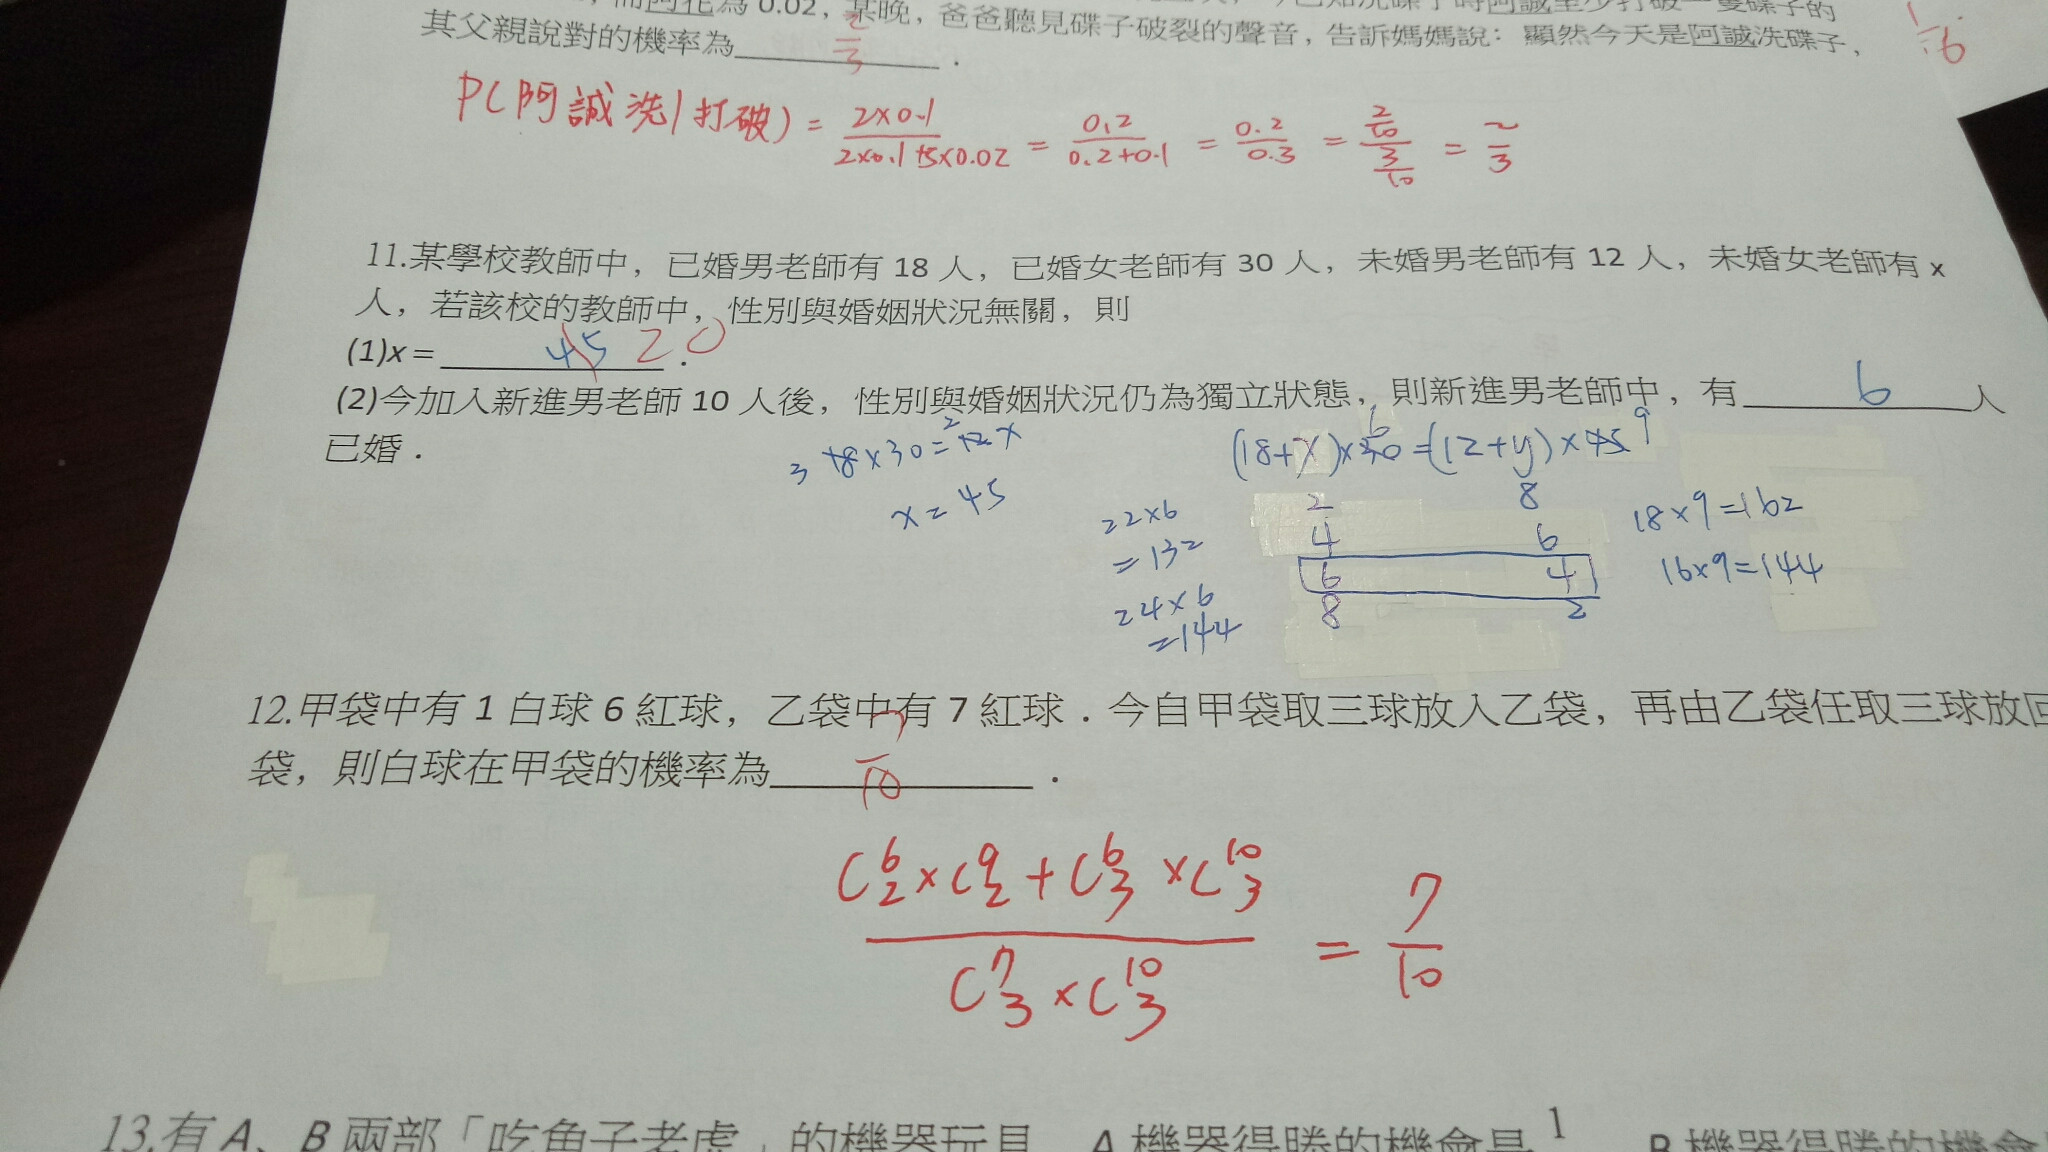 而阿花為 0.02，某晚，爸爸聽見碟子破裂的聲音，告訴媽媽說：顯然今天是阿誠洗碟子，
其父親說對的機率為 2/3 .
1/16
P(阿誠洗|打破) = 2×0.1 / 2×0.1+5×0.02 = 0.2 / 0.2+0.1 = 0.2 / 0.3 = 2/10 / 3/10 = 2/3
11.某學校教師中，已婚男老師有 18 人，已婚女老師有 30 人，未婚男老師有 12 人，未婚女老師有 x
人，若該校的教師中，性別與婚姻狀況無關，則
(1)x = 45 20 .
(2)今加入新進男老師 10 人後，性別與婚姻狀況仍為獨立狀態，則新進男老師中，有 6 人
已婚．
3 18×30=2 12x
x=45
(18+x)×30 6=(12+y)×45 9
2 8
4 6
6 4
8 2
22×6
=132
24×6
=144
18×9=162
16×9=144
12.甲袋中有 1 白球 6 紅球，乙袋中有 7 紅球．今自甲袋取三球放入乙袋，再由乙袋任取三球放回
袋，則白球在甲袋的機率為 7/10 ．
C6 2×C9 2+C6 3×C10 3 / C7 3×C10 3 = 7/10
13.有 A、B 兩部「吃角子老虎」的機器玩具，A 機器得勝的機會是 1 B 機器得勝的機會